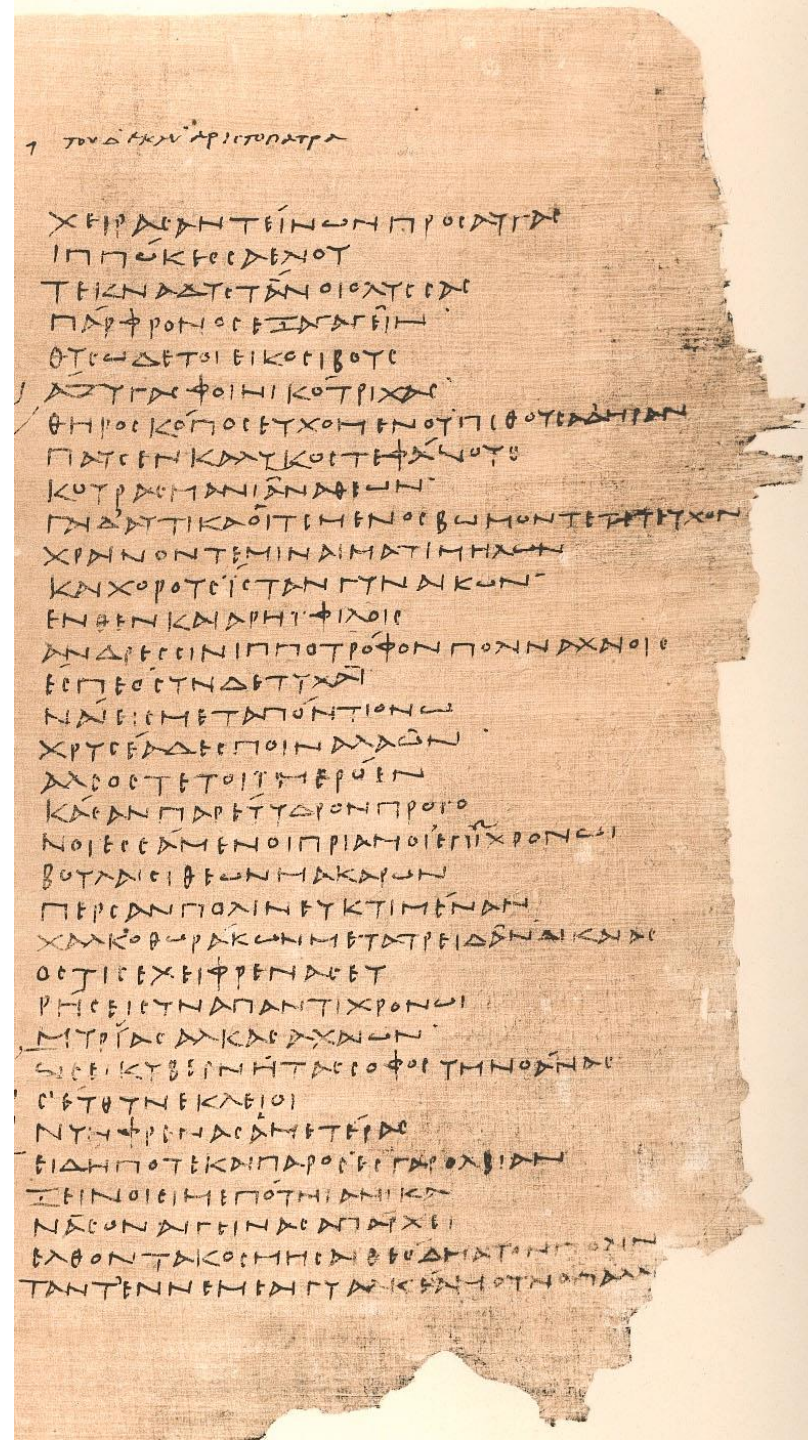 ΤΟΥΔ ΕΚΛΥ ΑΡΙϹΤΟΠΑΤΡΑ
ΧΕΙΡΑϹΑΝΤΕΊΝΩΝΠΡΟϹΑΥΓΑϹ
ΙΠΠΏΚΕΟϹΑΕΛΙΟΥ
ΤΕΚΝΑΔΥϹΤΆΝΟΙΟΛΥϹϹΑϹ
ΠΆΡΦΡΟΝΟϹΕΞΑΓΑΓΕΙ͂Ν·
ΘΥϹΩΔΕΤΟΙΕΙΚΟϹΙΒΟΥϹ
ΑΖΥΓΑϹΦΟΙΝΙΚΌΤΡΙΧΑϹ·
ΘΗΡΟϹΚΌΠΟϹΕΥΧΟΜΕΝΟΥ·ΠΙΘΟΥϹΑΔΗΡΑΝ
ΠΑΥϹΕΝΚΑΛΥΚΟϹΤΕΦΆΝΟΥϹ
ΚΟΥΡΑϹΜΑΝΙΑ͂ΝΑΘΕΩΝ·
ΓΑΙΔ'ΑΥΤΙΚΑΟΙΤΕΜΕΝΟϹΒΩΜΟΝΤΕΤΕΥΧΟΝ
ΧΡΑΙΝΟΝΤΕΜΙΝΑΙΜΑΤΙΜΗΛΩΝ
ΚΑΙΧΟΡΟΥϹΊϹΤΑΝΓΥΝΑΙΚΩΝ·
ΕΝΘΕΝΚΑΙΑΡΗΙΦΙΛΟΙϹ
ΑΝΔΡΕϹϹΙΝΙΠΠΟΤΡΌΦΟΝΠΟΛΙΝΑΧΑΙΟΙϹ
ΕϹΠΕΟϹΥΝΔΕΤΥΧΑΙ
ΝΑΊΕΙϹΜΕΤΑΠΌΝΤΙΟΝΩ
ΧΡΥϹΈΑΔΕϹΠΟΙΝΑΛΑΩ͂Ν·
ΑΛϹΟϹΤΕΤΟΙΙΜΕΡΌΕΝ
ΚΆϹΑΝΠΑΡΕΥΥΔΡΟΝΠΡΟΓΟ
ΝΟΙΕϹϹΆΜΕΝΟΙΠΡΙΑΜΟΙΕΠΕΙΧΡΟΝΩΙ
ΒΟΥΛΑΙϹΙΘΕΩΝΜΑΚΑΡΩΝ
ΠΕΡϹΑΝΠΟΛΙΝΕΥΚΤΙΜΈΝΑΝ
ΧΑΛΚΟΘΩΡΆΚΩΝΜΕΤΑΤΡΕΙΔΑ͂ΝΔΙΚΑΙΑϹ
ΟϹΤΙϹΕΧΕΙΦΡΕΝΑϹΕΥ
ΡΉϹΕΙϹΥΝΑΠΑΝΤΙΧΡΟΝΩΙ
ΜΥΡΊΑϹΑΛΚΑϹΑΧΑΙΩΝ·
ΩϹΕΙΚΥΒΕΡΝΉΤΑϹϹΟΦΟϹΥΜΝΟΆΝΑϹ
Ϲ'ΕΎΘΥΝΕΚΛΕΙΟΙ
ΝΥΝΦΡΕΝΑϹΑΜΕΤΈΡΑϹ
ΕΙΔΗΠΟΤΕΚΑΙΠΑΡΟϹ·ΕϹΓΑΡΟΛΒΙΑΝ
ΞΕΙΝΟΙϹΙΜΕΠΌΤΝΙΑΝΙΚΑ
ΝΆϹΟΝΑΙΓΕΙΝΑϹΑΠΆΡΧΕΙ
ΕΛΘΟΝΤΑΚΟϹΜΗϹΑΙΘΕΌΔΜΑΤΟΝΠΟΛΙΝ
ΤΑΝΤ'ΕΝΝΕΜΕΑΙΓΥΙΑΛΚΈΑΜΟΥΝΟΠΑΛΑ